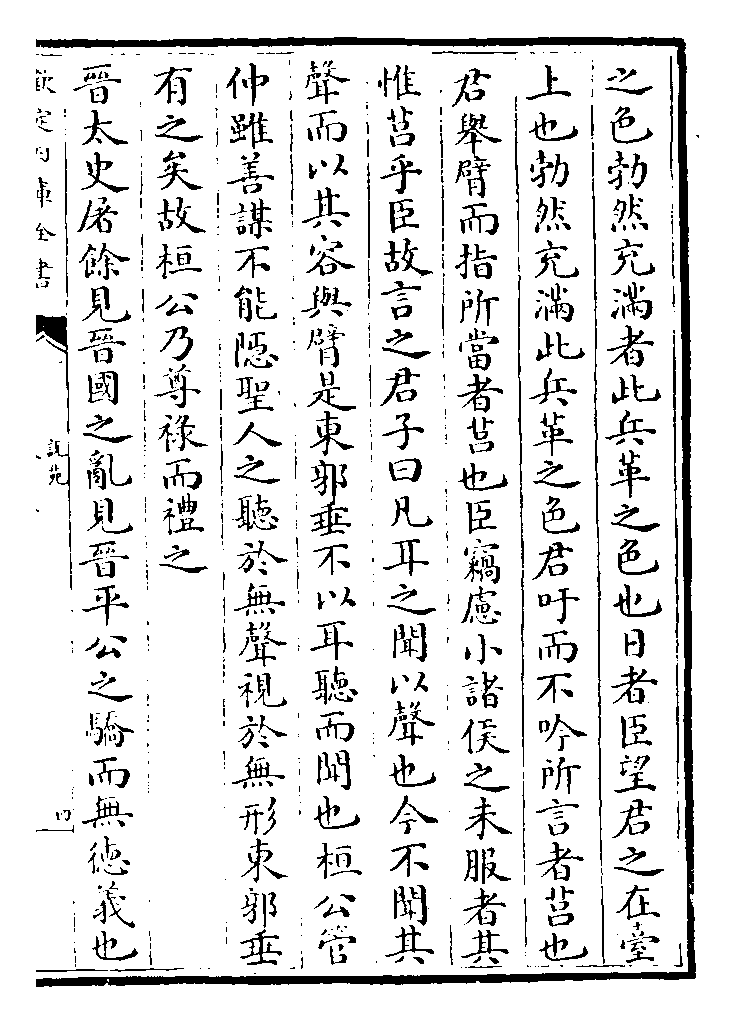 之色勃然充滿者此兵革之色也日者臣望君之在臺
上也勃然充滿此兵革之色君吁而不吟所言者莒也
君舉臂而指所當者莒也臣竊慮小諸侯之未服者其
惟莒乎臣故言之君子曰凡耳之聞以聲也今不聞其
聲而以其容與臂是東郭垂不以耳聽而聞也桓公管
仲雖善謀不能隱聖人之聽於無聲視於無形東郭垂
有之矣故桓公乃尊祿而禮之
晉太史屠餘見晉國之亂見晉平公之驕而無徳義也
欽定四庫全書
說苑